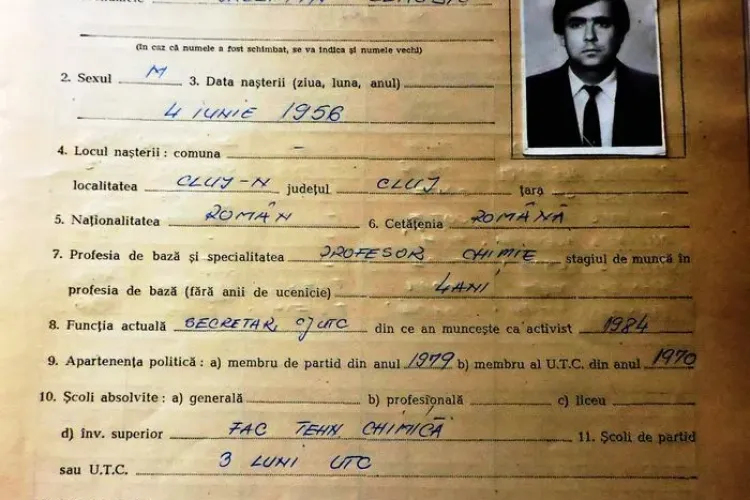 (în caz că numele a fost schimbat, se va indica și numele vechi)
2. Sexul M 3. Data nașterii (ziua, luna, anul)
4 IUNIE 1956
4. Locul nașterii : comuna –
localitatea CLUJ-N județul CLUJ țara
5. Naționalitatea ROMÂN 6. Cetățenia ROMÂNĂ
7. Profesia de bază și specialitatea PROFESOR CHIMIE stagiul de muncă în
profesia de bază (fără anii de ucenicie) 4 ANI
8. Funcția actuală SECRETAR CJ UTC din ce an muncește ca activist 1984
9. Apartenența politică : a) membru de partid din anul 1979 b) membru al U.T.C. din anul 1970
10. Școli absolvite : a) generală b) profesională c) liceu
d) înv. superior FAC TEHN CHIMICĂ 11. Școli de partid
sau U.T.C. 3 LUNI UTC